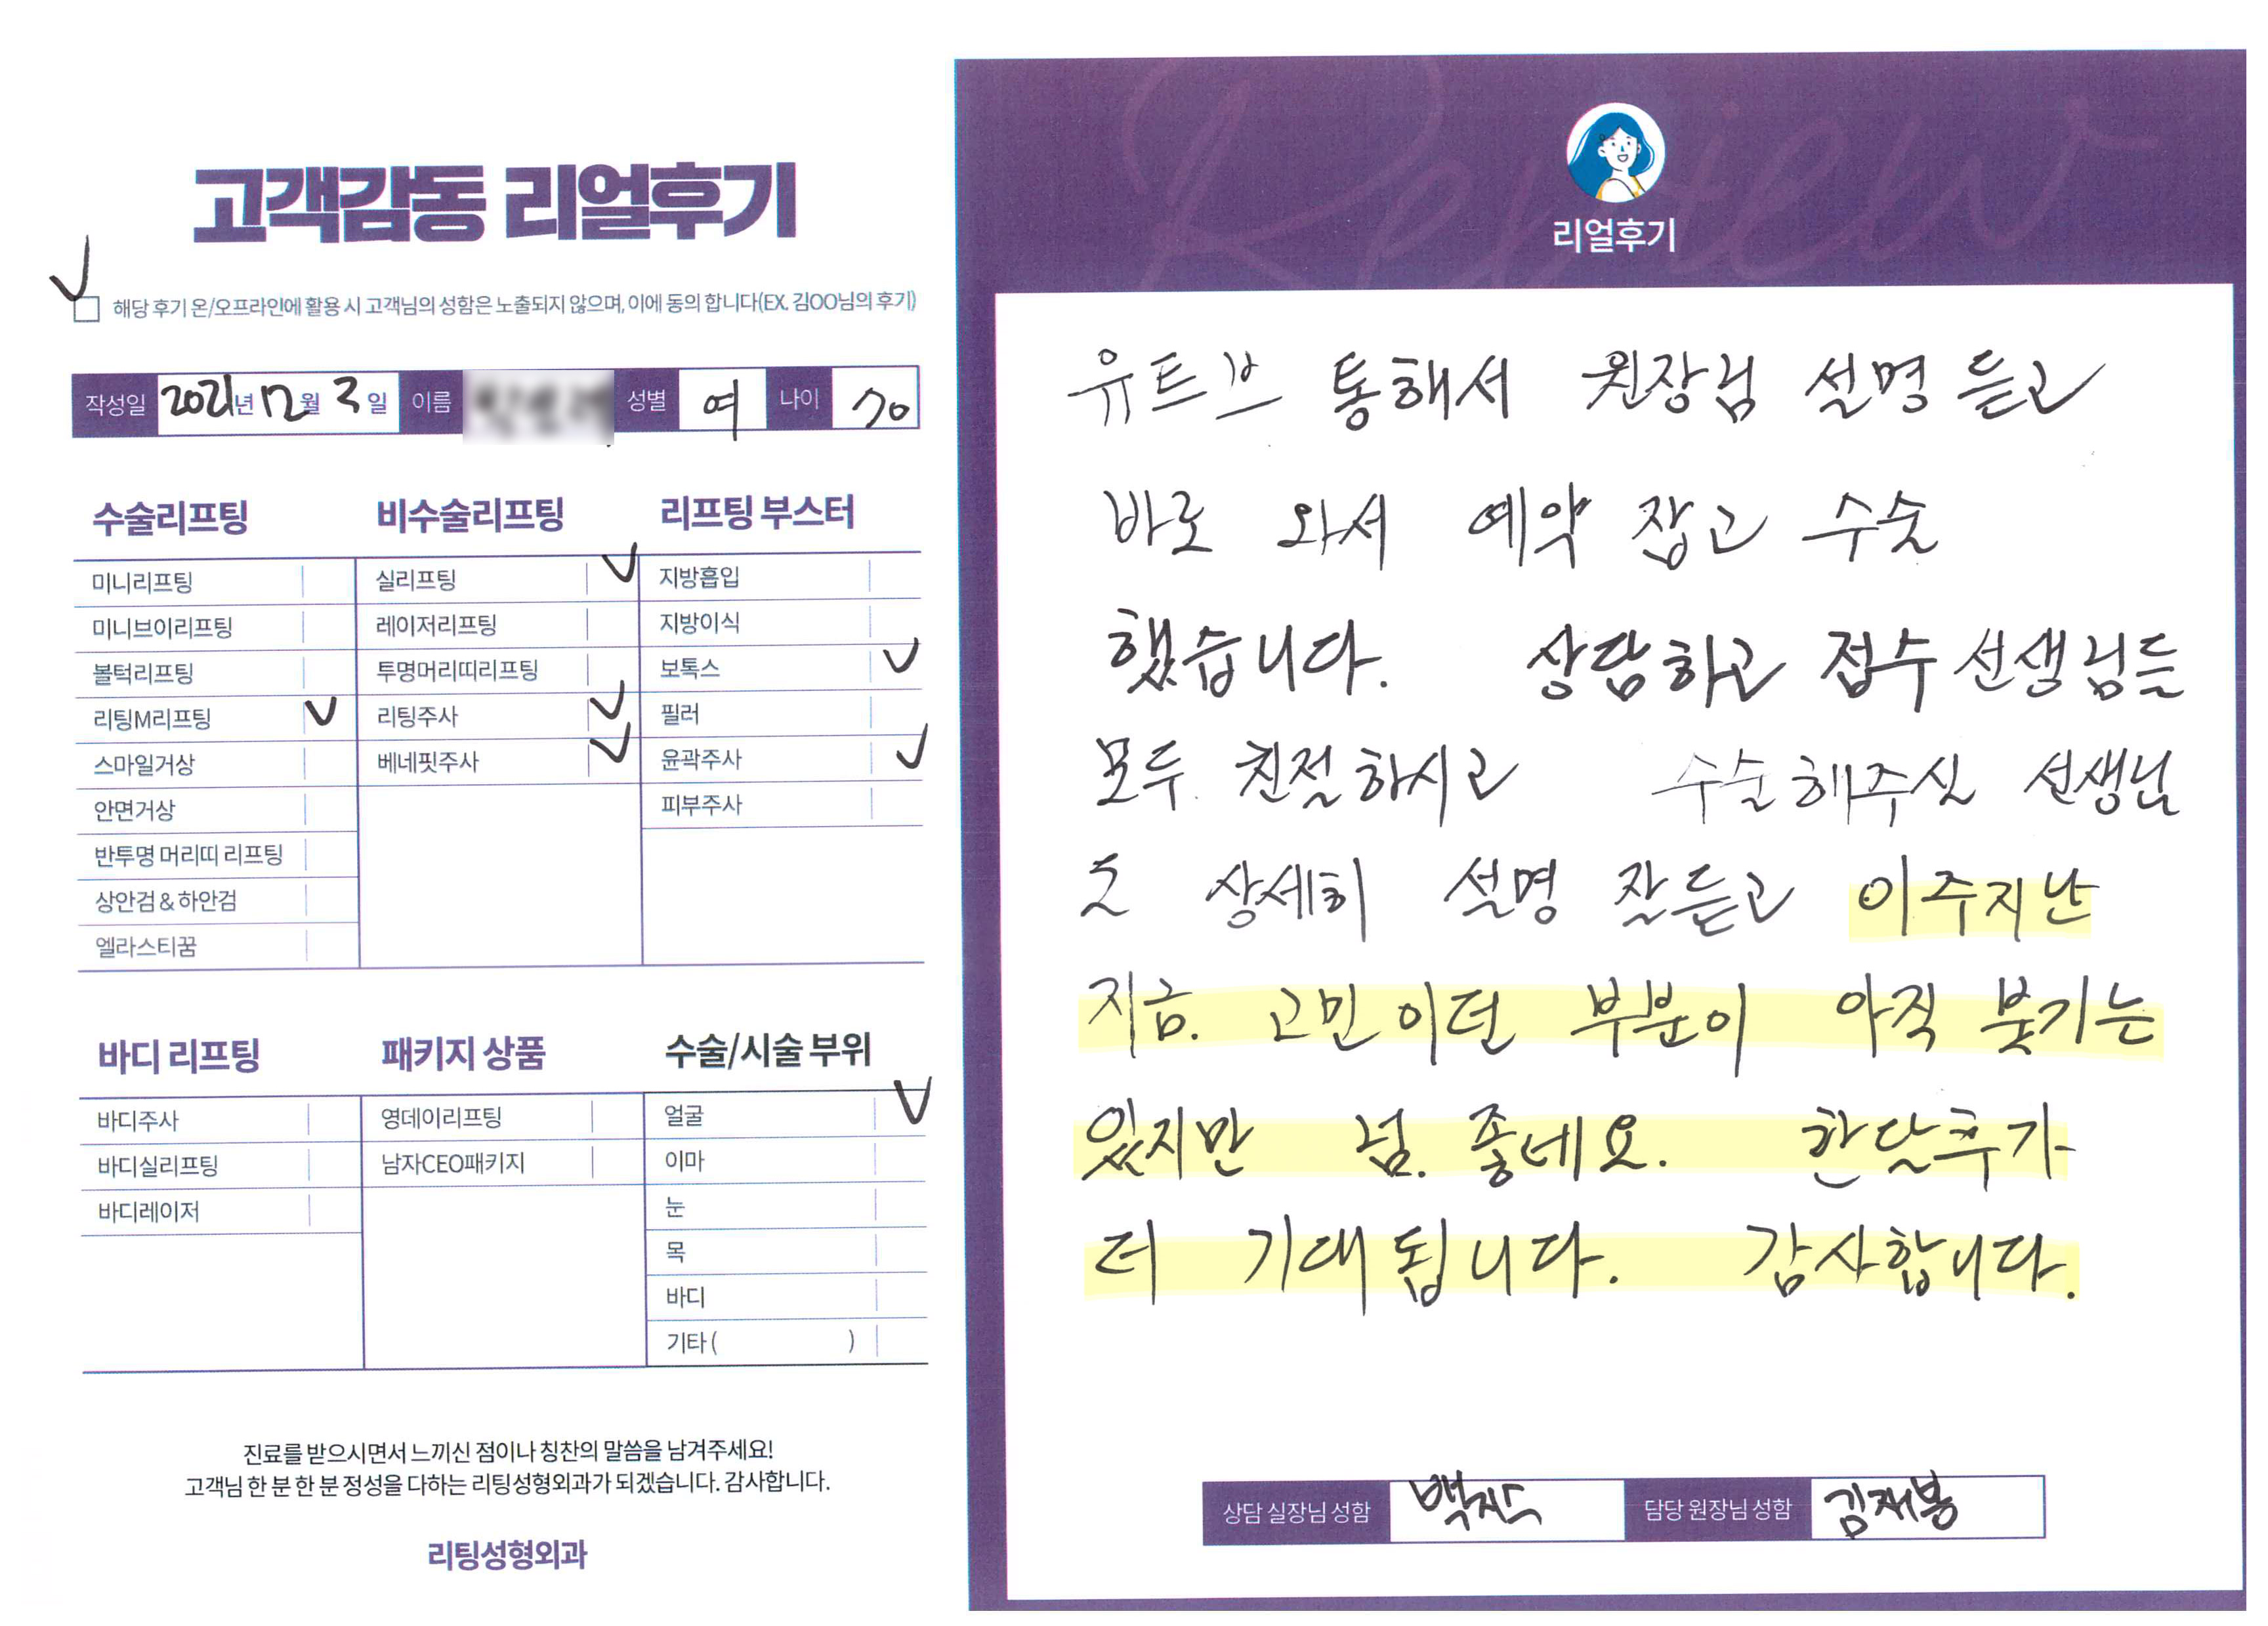 고객감동 리얼후기
해당 후기 온/오프라인에 활용 시 고객님의 성함은 노출되지 않으며, 이에 동의 합니다(EX. 김OO님의 후기)
작성일 2021년 12월 3일 이름 성별 여 나이 70
수술리프팅
미니리프팅
미니브이리프팅
볼턱리프팅
리팅M리프팅
스마일거상
안면거상
반투명 머리띠 리프팅
상안검 & 하안검
엘라스티꿈
비수술리프팅
실리프팅
레이저리프팅
투명머리띠리프팅
리팅주사
베네핏주사
리프팅 부스터
지방흡입
지방이식
보톡스
필러
윤곽주사
피부주사
바디 리프팅
바디주사
바디실리프팅
바디레이저
패키지 상품
영데이리프팅
남자CEO패키지
수술/시술 부위
얼굴
이마
눈
목
바디
기타 ( )
진료를 받으시면서 느끼신 점이나 칭찬의 말씀을 남겨주세요!
고객님 한 분 한 분 정성을 다하는 리팅성형외과가 되겠습니다. 감사합니다.
리팅성형외과
Review
리얼후기
유트브 통해서 원장님 설명 듣고
바로 와서 예약 잡고 수술
했습니다. 상담하고 접수 선생님들
모두 친절하시고 수술해주신 선생님
도 상세히 설명 잘듣고 이주지난
지금. 고민이던 부분이 아직 붓기는
있지만 넘. 좋네요. 한달후가
더 기대됩니다. 감사합니다.
상담 실장님 성함
담당 원장님 성함 김재봉